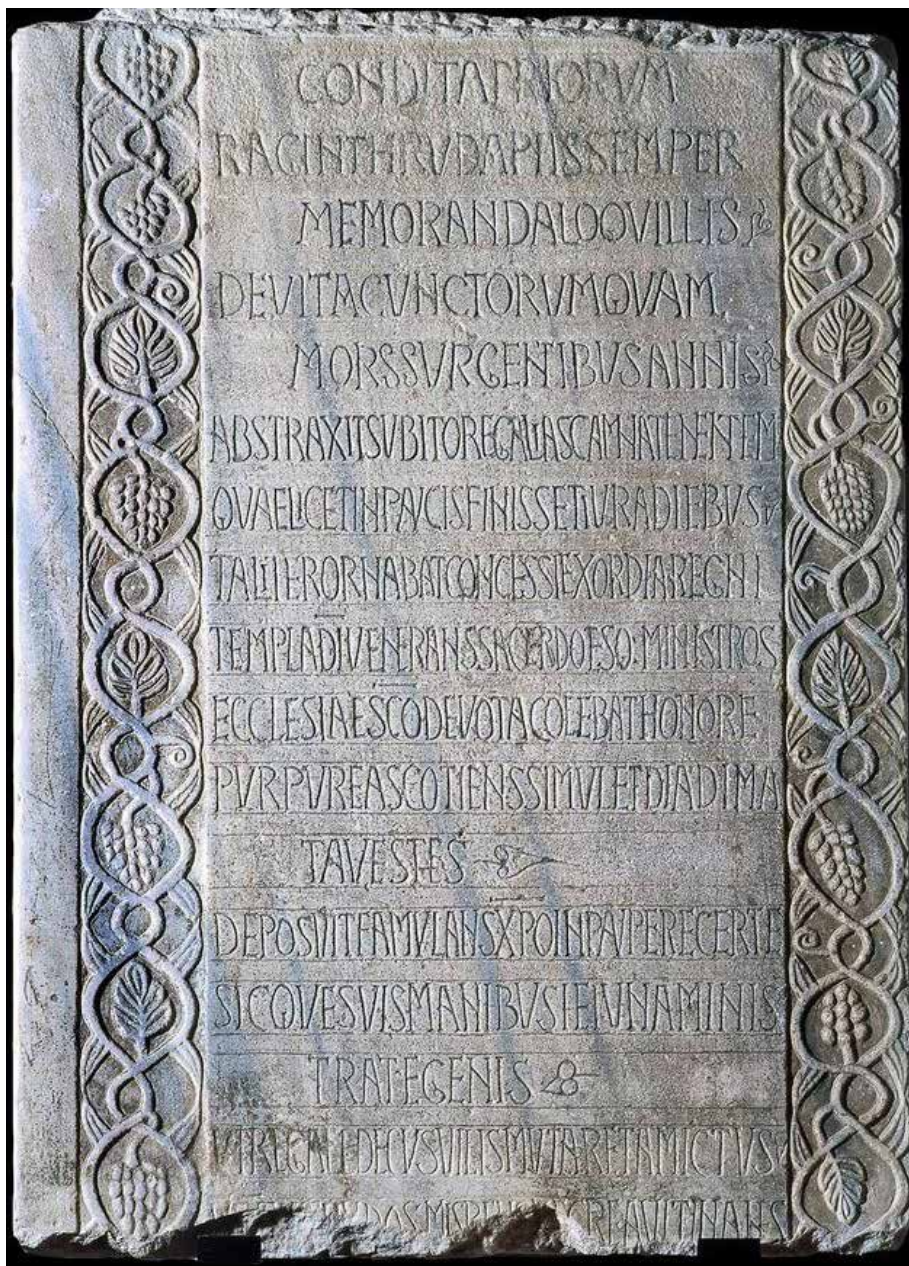 CONDITAPRIORVM
RAGINTHRVDAPIISSEMPER
MEMORANDALOQVILLIS
DEVITACVNCTORVMQVAM
MORSSVRGENTIBVSANNIS
ABSTRAXITSVBITOREGALIASCAMNATENENTEM
QVAELICETINPAVCISFINISSETIVRADIEBVS
TALITERORNABATCONCESSIEXORDIAREGNI
TEMPLADIVENERANSSACERDOTESQ·MINISTROS
ECCLESIAESCODEVOTACOLEBATHONORE
PVRPVREASCOMENSSIMVLETDIADIMA
TAVESTES
DEPOSVITFAMVLANSXPOINPAVPERECERTE
SICQVESVISMANIBVSIEIVNAMINIS
TRATEGENIS
VTREGNIDECVSVILISMVTARETAMICTVS